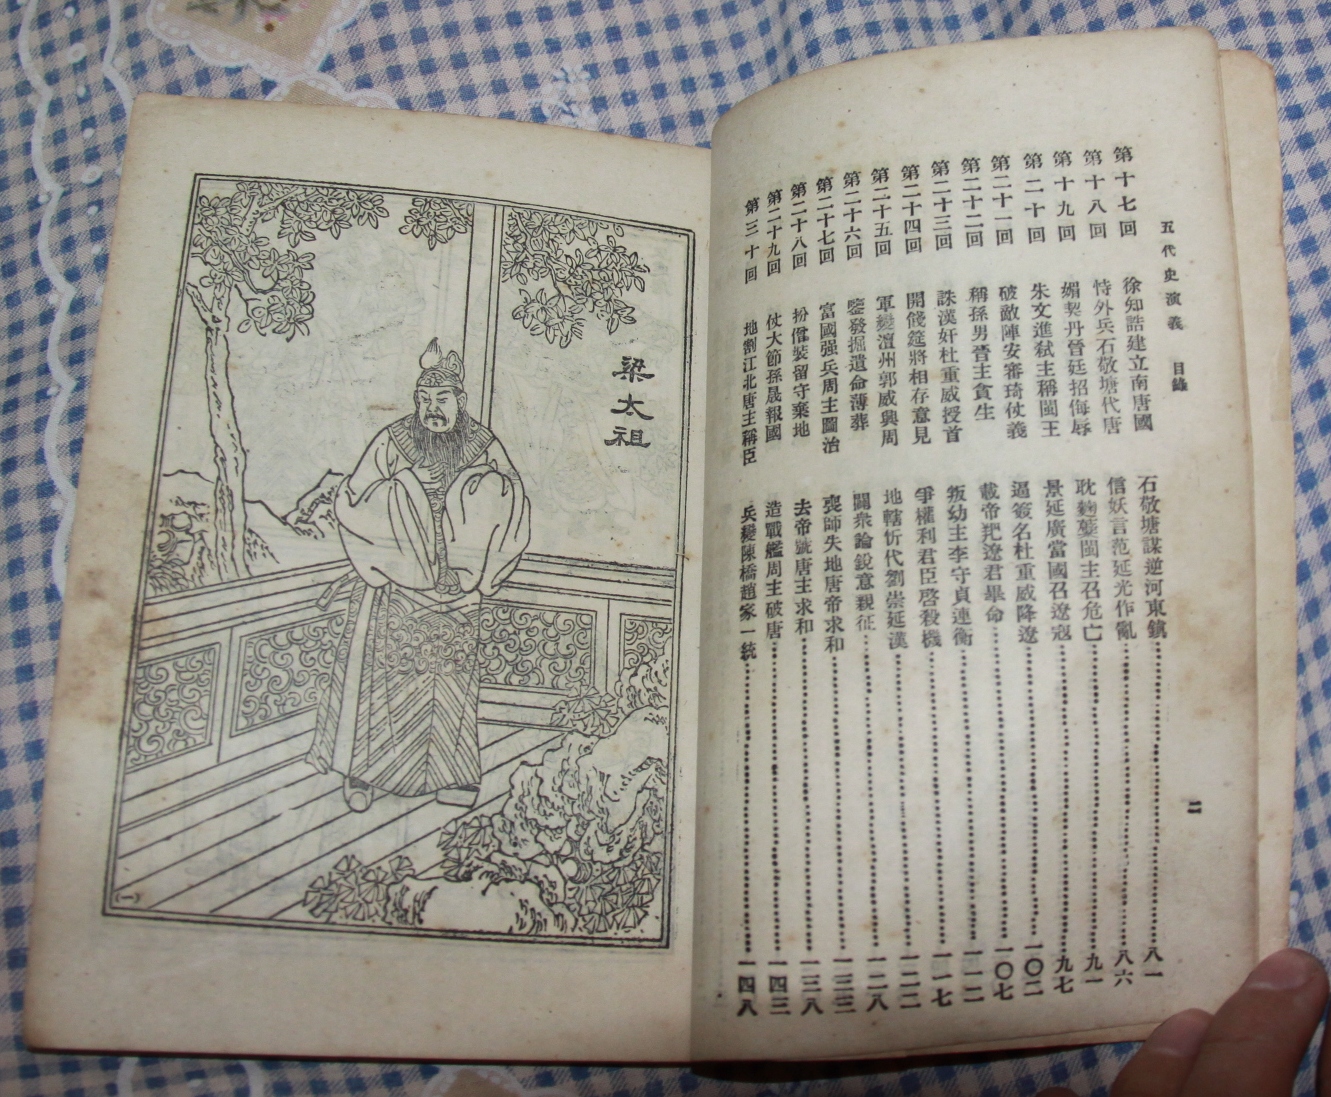 五代史演義 目錄
二
第十七回 徐知誥建立南唐國 石敬塘謀逆河東鎮 八一
第十八回 恃外兵石敬塘代唐 信妖言范延光作亂 八六
第十九回 媚契丹晉廷招侮辱 耽麴蘖閩主召危亡 九一
第二十回 朱文進弒主稱閩王 景延廣當國召遼寇 九七
第二十一回 破敵陣安審琦仗義 逼簽名杜重威降遼 一〇二
第二十二回 稱孫男晉主貪生 載帝羓遼君畢命 一〇七
第二十三回 誅漢奸杜重威授首 叛幼主李守貞連衡 一一二
第二十四回 開餞筵將相存意見 爭權利君臣啓殺機 一一七
第二十五回 軍變澶州郭威興周 地轄忻代劉崇延漢 一二二
第二十六回 鑒發掘遺命薄葬 闢衆論銳意親征 一二八
第二十七回 富國强兵周主圖治 喪師失地唐帝求和 一三三
第二十八回 扮僧裝留守棄地 去帝號唐主求和 一三八
第二十九回 仗大節孫晟報國 造戰艦周主破唐 一四三
第三十回 地割江北唐主稱臣 兵變陳橋趙家一統 一四八
梁太祖
(一)